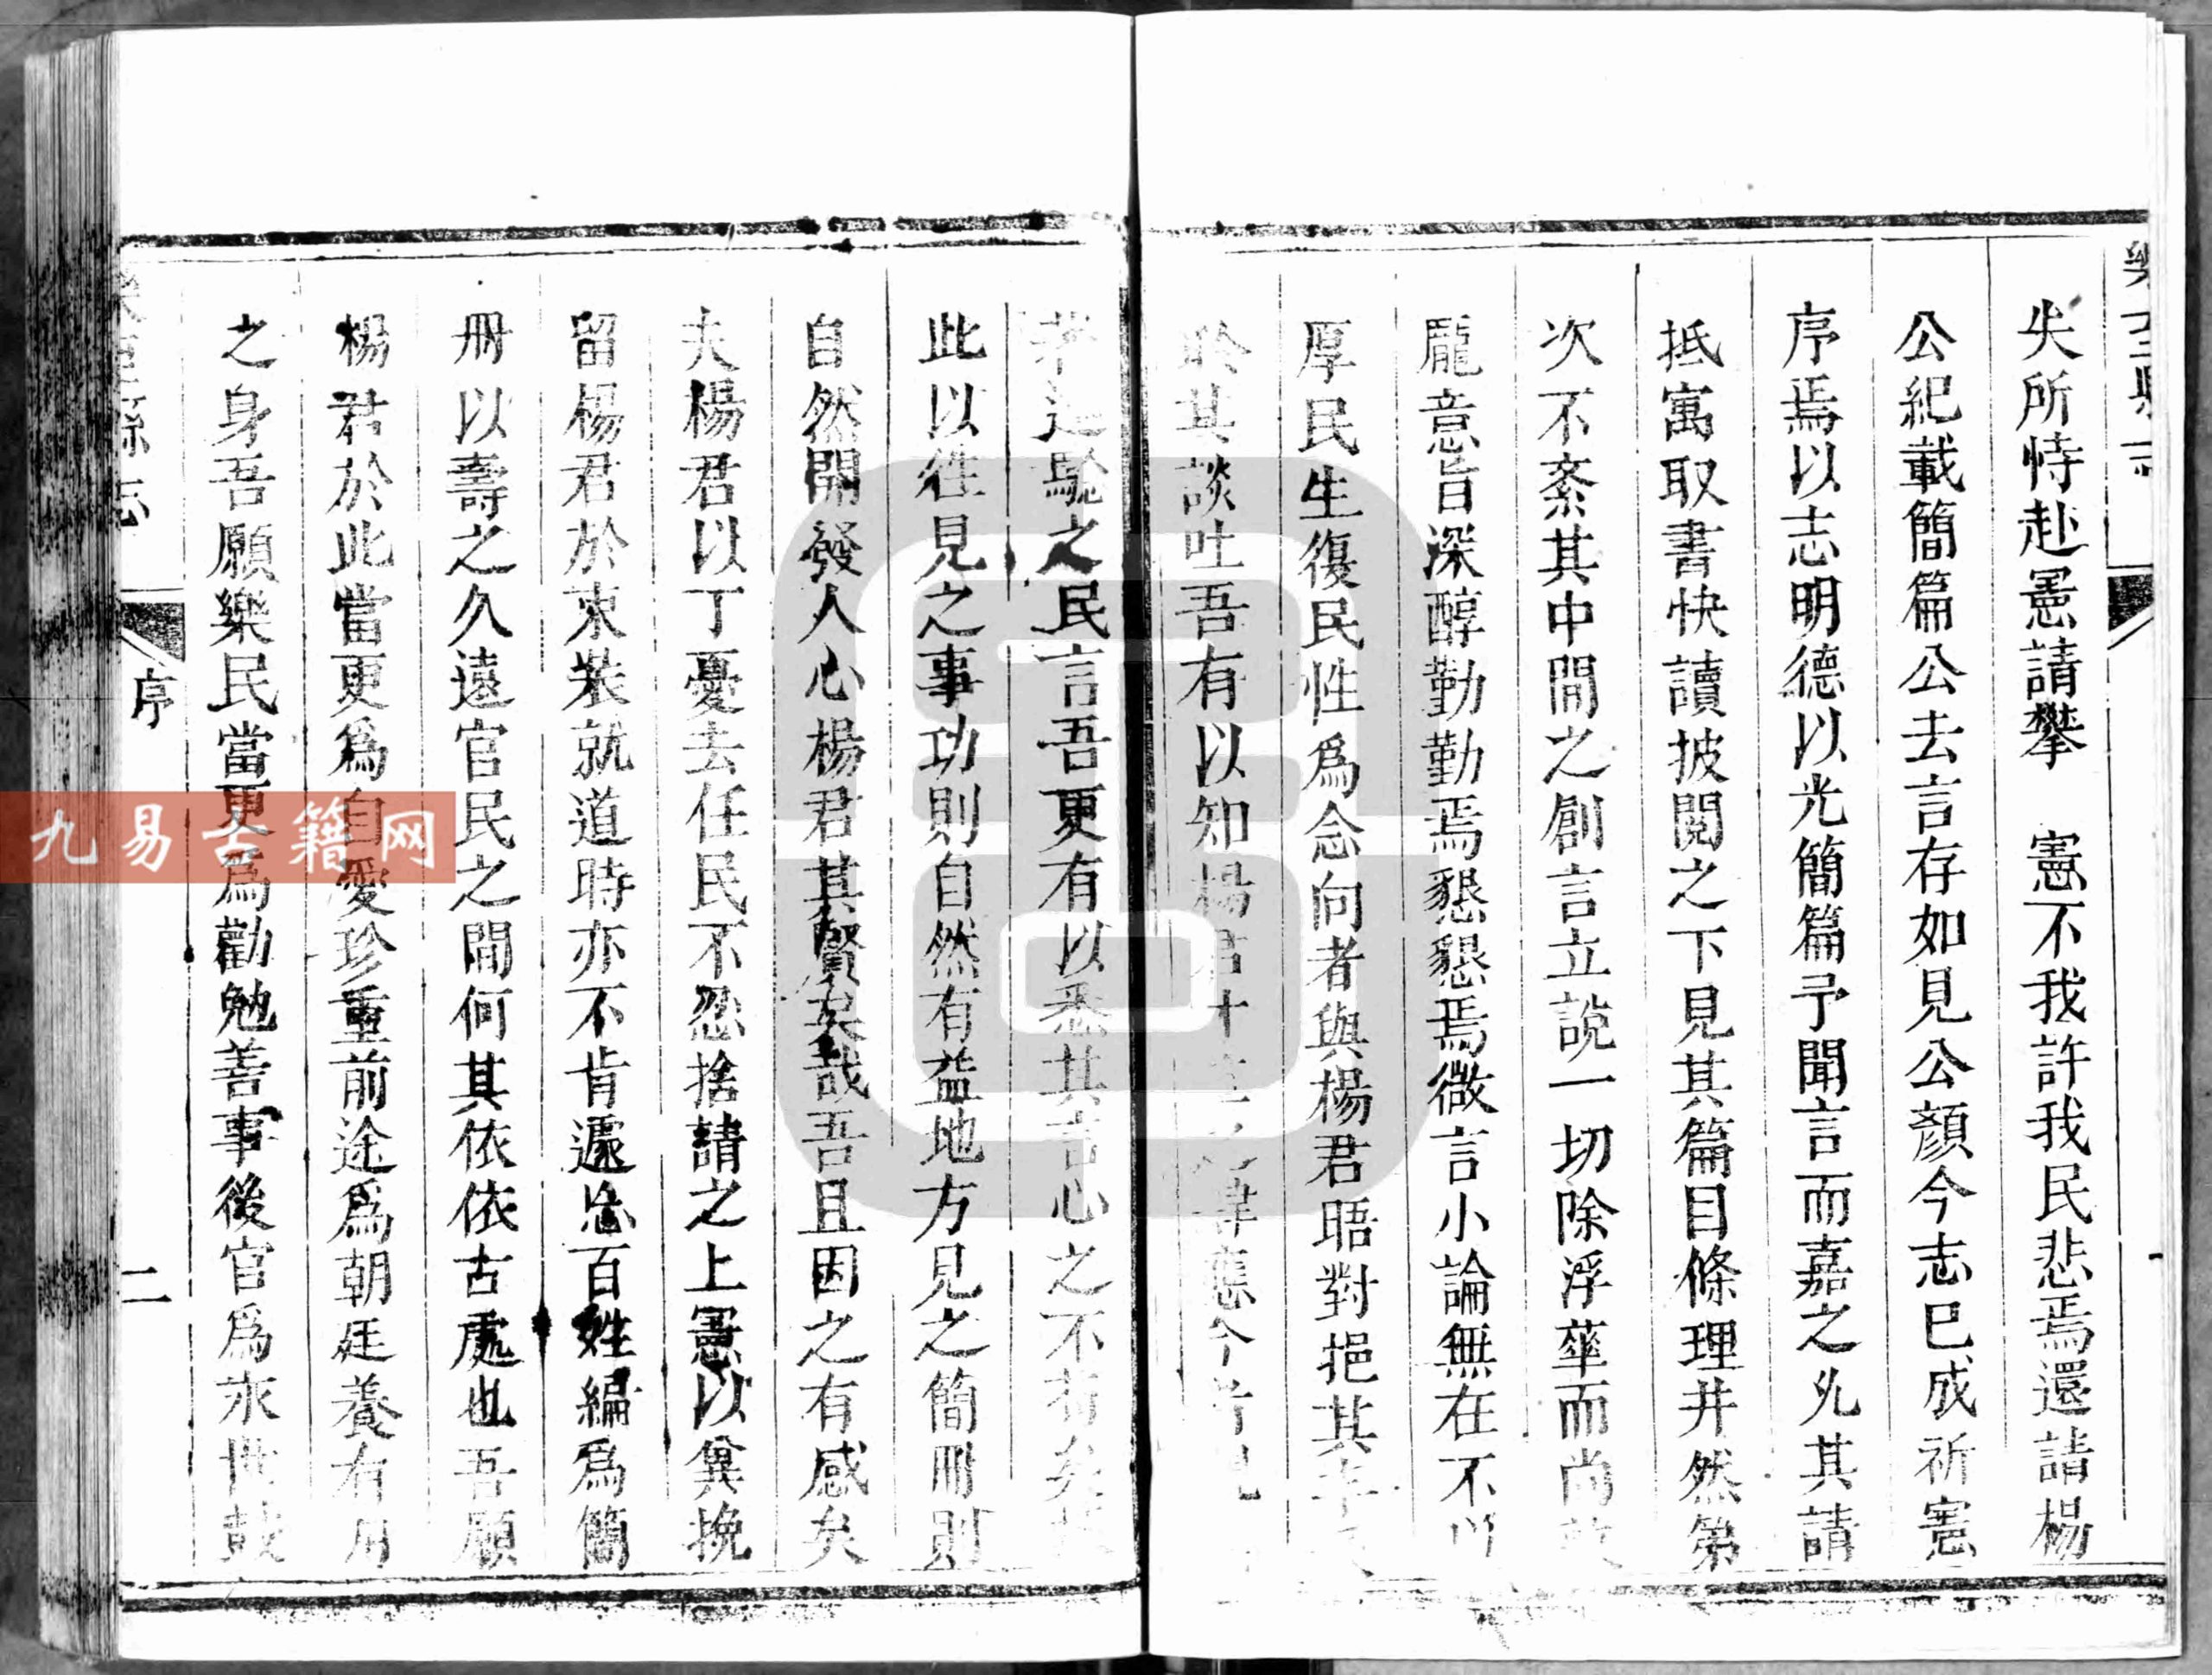 失所恃赴憲請攀　憲不我許我民悲焉還請楊
公紀載簡篇公去言存如見公顏今志已成祈憲
序焉以志明德以光簡篇予聞言而嘉之允其請
抵寓取書快讀披閱之下見其篇目條理井然第
次不紊其中間之創言立說一切除浮華而尚
龐意旨深醇勤勤焉懇懇焉微言小論無在不以
厚民生復民性爲念向者與楊君晤對挹其
聆其談吐吾有以知楊君
之民言吾更有以悉其心之不
此以往見之事功則自然有益地方見之簡冊則
自然開發人心楊君其賢矣哉吾且因之有感矣
夫楊君以丁憂去任民不忍捨請之上憲以冀挽
留楊君於束裝就道時亦不肯遽忘百姓編爲簡
冊以壽之久遠官民之間何其依依古處也吾願
楊君於此當更爲自愛珍重前途爲朝廷養有用
之身吾願樂民當更爲勸勉善事後官爲永世鼓
序
二
九易古籍网